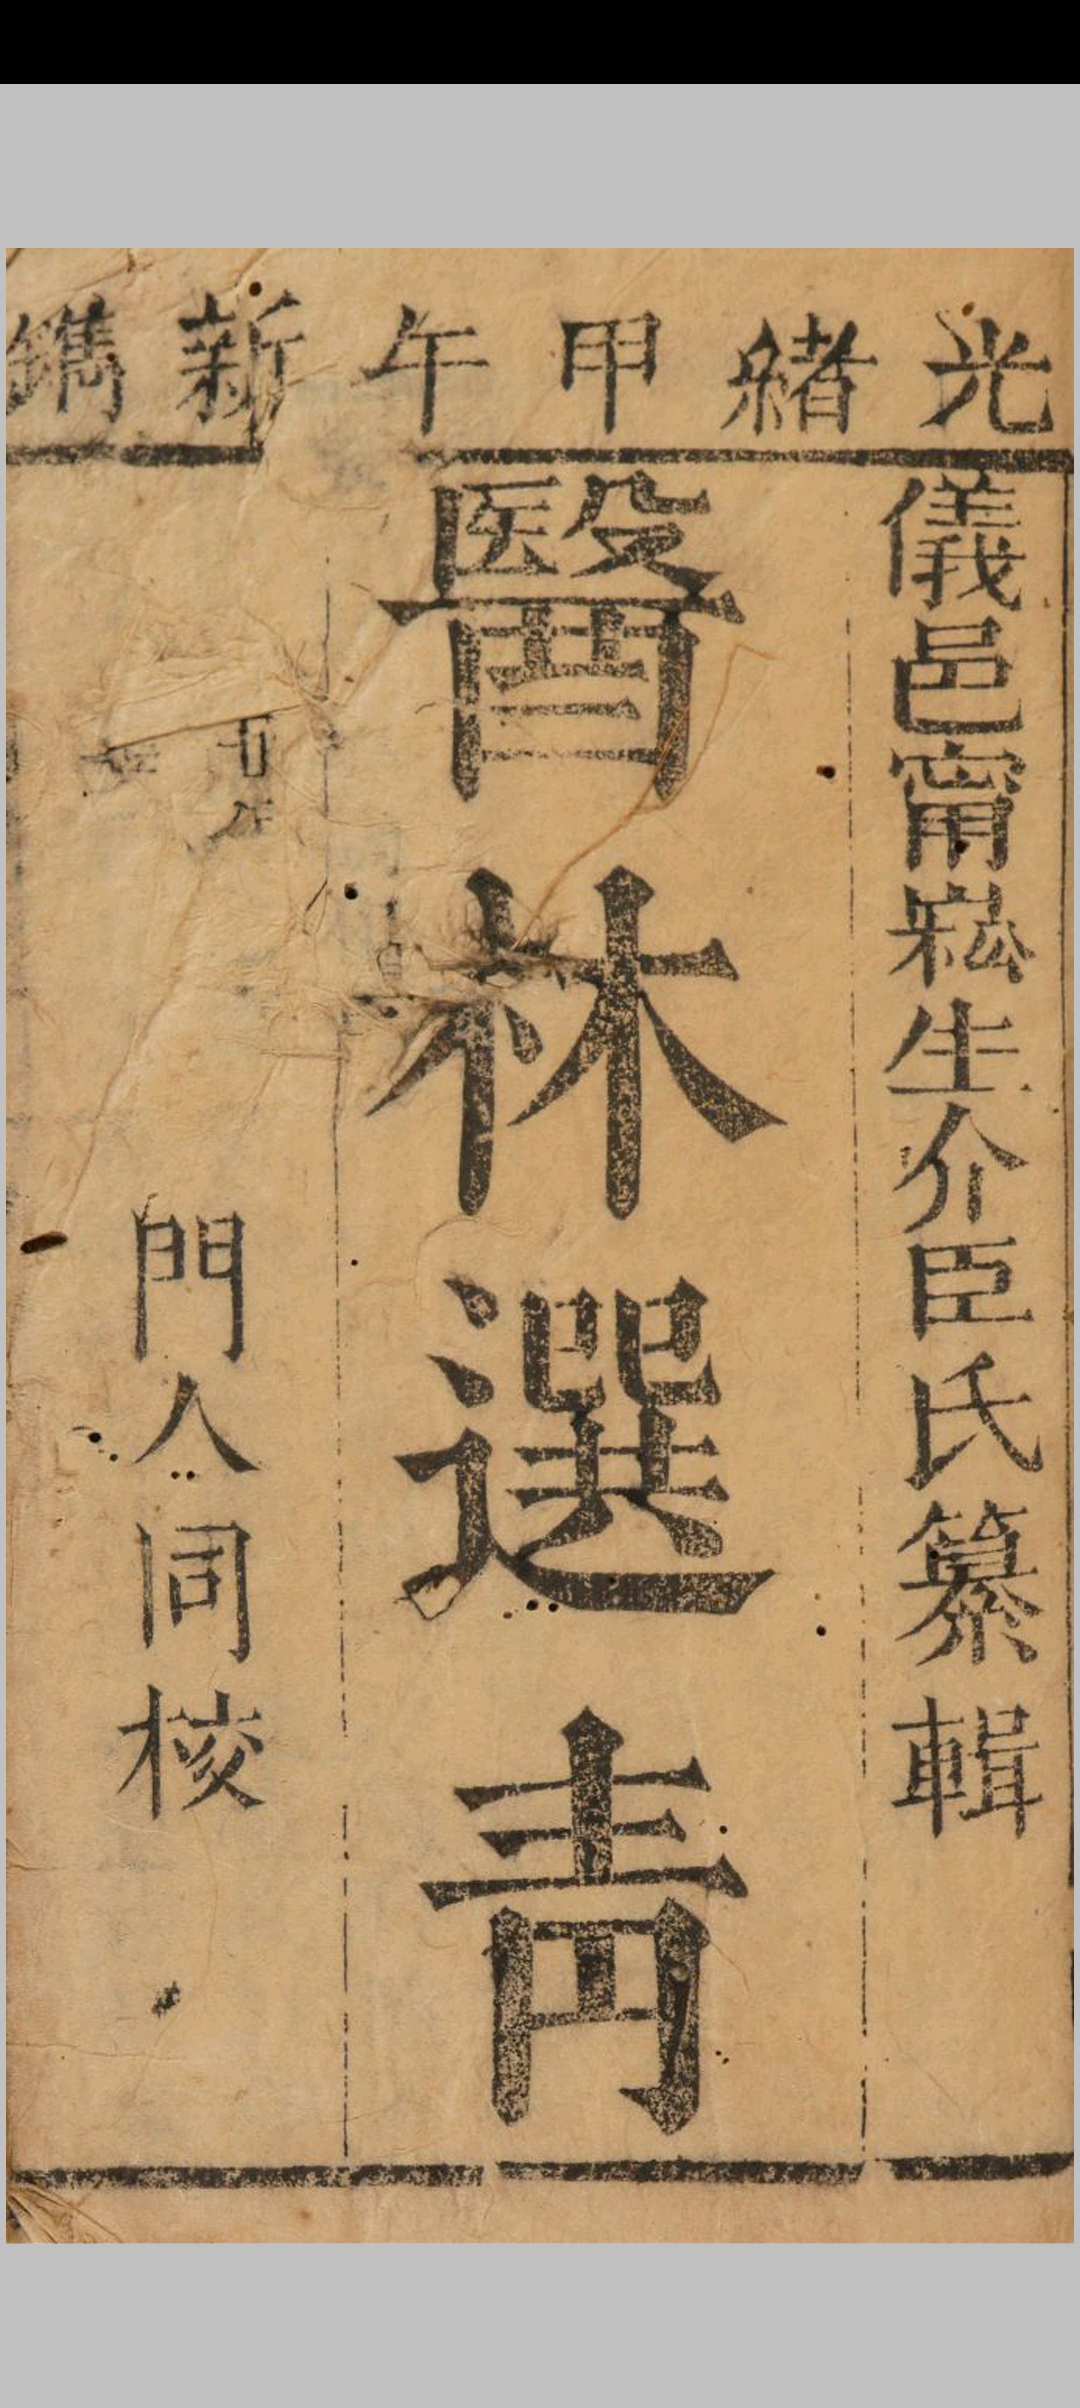 光緒甲午新鐫
儀邑甯崧生介臣氏纂輯
醫林選青
門人同校